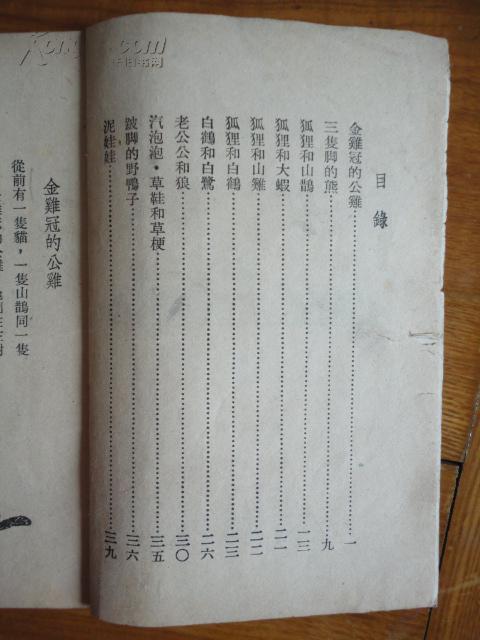 目錄
金雞冠的公雞 一
三隻脚的熊 九
狐狸和山鵲 一三
狐狸和大蝦 二一
狐狸和山雞 二二
狐狸和白鶴 二三
白鶴和白鷺 二六
老公公和狼 三〇
汽泡泡·草鞋和草梗 三五
跛脚的野鴨子 三六
泥娃娃 三九
金雞冠的公雞
從前有一隻貓，一隻山鵲同一隻